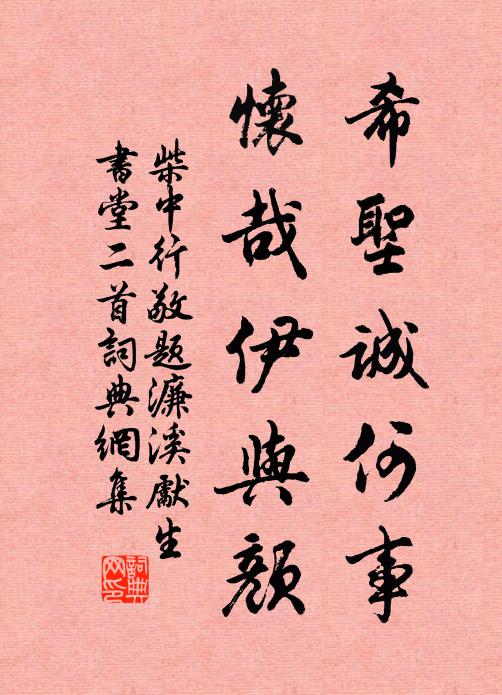 希聖誠何事
懷哉伊與顏
柴中行敬題濂溪獻生
書堂二首詞典網集
詞典
网印